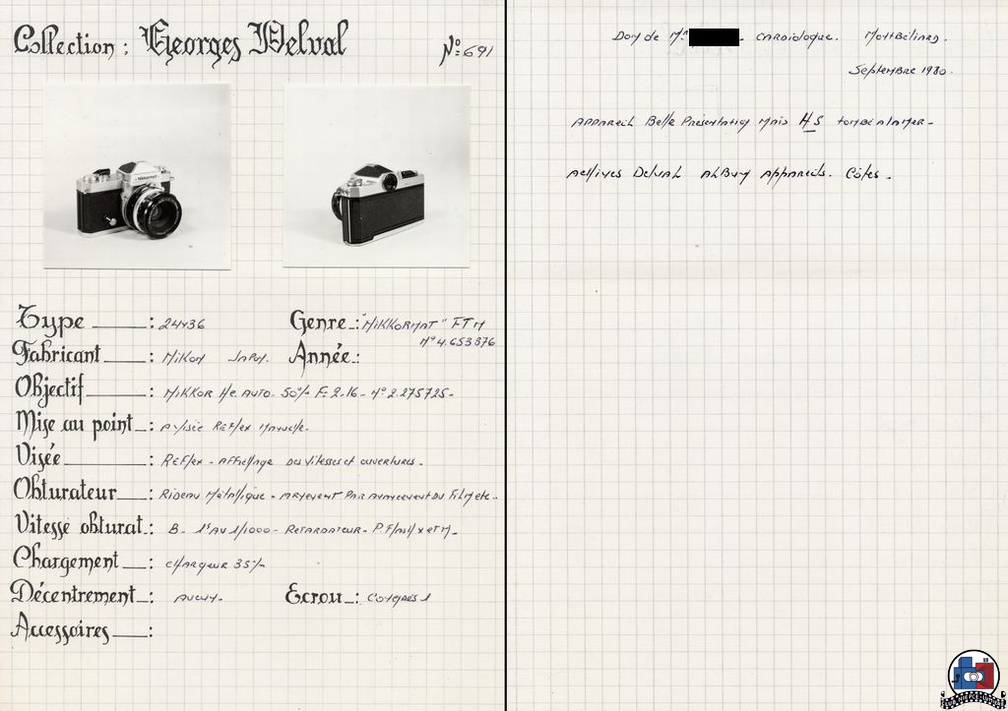 Collection : Georges Delval
N°: 691
Nikkormat
Type : 24x36
Genre : "NIKKORMAT" FTN
N° 4.653876
Fabricant : Nikon Japon.
Année :
Objectif : NIKKOR H.C. AUTO. 50% F: 2.16 - N° 2.275725-
Mise au point : A visée Réflex Manuelle.
Visée : Réflex - Affichage des vitesses et ouvertures.
Obturateur : Rideau Métallique - armement Par avancement du Film etc.
Vitesse obturat. : B - 1s Au 1/1000 - Retardateur - P. Flash X et M.
Chargement : chargeur 35%
Décentrement : Aucun.
Ecrou : Congrès 1
Accessoires :
Don de Mr . Cardiologue. Montbéliard.
Septembre 1980.
Appareil Belle Présentation Mais HS tombé à la mer -
Archives Delval Album Appareils. Côtes .